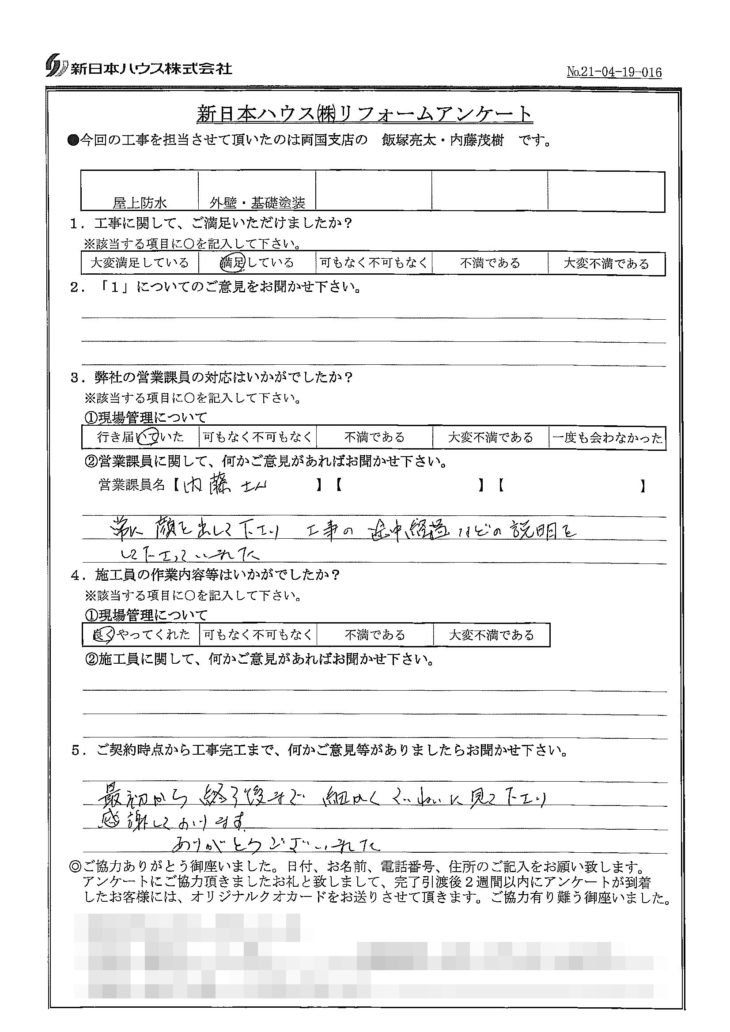 新日本ハウス株式会社
№21-04-19-016
新日本ハウス㈱リフォームアンケート
●今回の工事を担当させて頂いたのは両国支店の 飯塚亮太・内藤茂樹 です。
屋上防水 外壁・基礎塗装
1．工事に関して、ご満足いただけましたか？
※該当する項目に○を記入して下さい。
大変満足している 満足している 可もなく不可もなく 不満である 大変不満である
2．「1」についてのご意見をお聞かせ下さい。
3．弊社の営業課員の対応はいかがでしたか？
※該当する項目に○を記入して下さい。
①現場管理について
行き届いていた 可もなく不可もなく 不満である 大変不満である 一度も会わなかった
②営業課員に関して、何かご意見があればお聞かせ下さい。
営業課員名【内藤さん 】【 】【 】
常に顔を出して下さり 工事の途中経過などの説明を
して下さっていました
4．施工員の作業内容等はいかがでしたか？
※該当する項目に○を記入して下さい。
①現場管理について
良くやってくれた 可もなく不可もなく 不満である 大変不満である
②施工員に関して、何かご意見があればお聞かせ下さい。
5．ご契約時点から工事完工まで、何かご意見等がありましたらお聞かせ下さい。
最初から 終了後まで 細かくていねいに見て下さり
感謝しております
ありがとうございました
◎ご協力ありがとう御座いました。日付、お名前、電話番号、住所のご記入をお願い致します。
アンケートにご協力頂きましたお礼と致しまして、完了引渡後２週間以内にアンケートが到着
したお客様には、オリジナルクオカードをお送りさせて頂きます。ご協力有り難う御座いました。